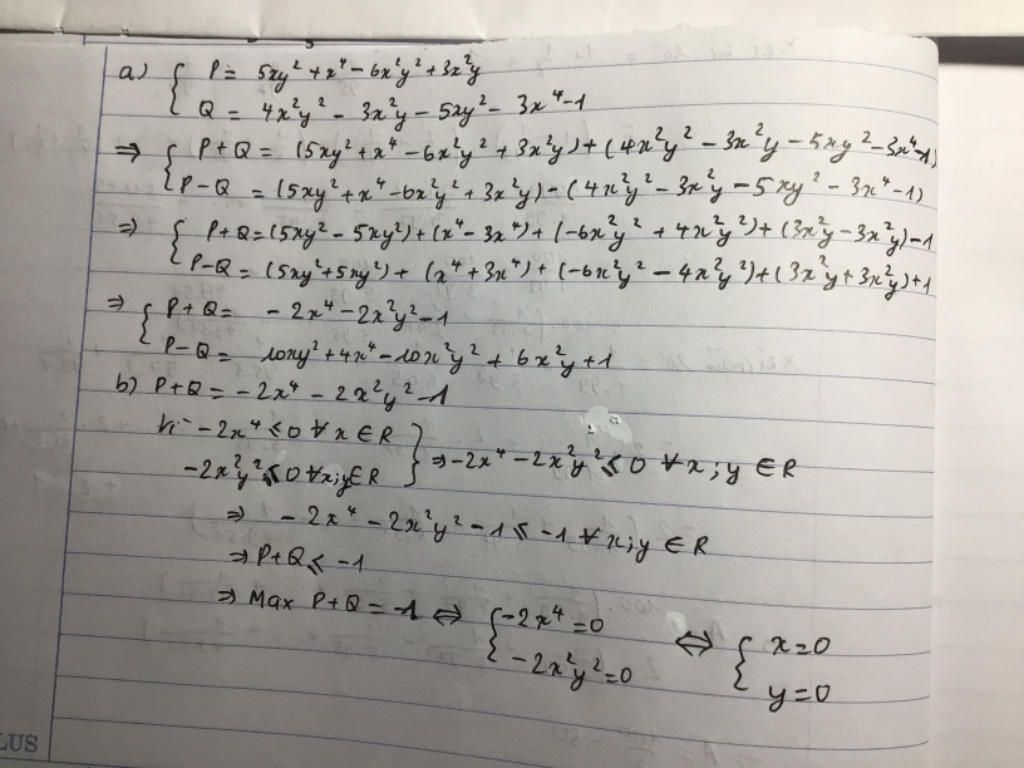 a) { P = 5xy² + x⁴ - 6x²y² + 3x²y
Q = 4x²y² - 3x²y - 5xy² - 3x⁴ - 1
⇒ { P+Q = (5xy² + x⁴ - 6x²y² + 3x²y) + (4x²y² - 3x²y - 5xy² - 3x⁴ - 1)
P-Q = (5xy² + x⁴ - 6x²y² + 3x²y) - (4x²y² - 3x²y - 5xy² - 3x⁴ - 1)
⇒ { P+Q = (5xy² - 5xy²) + (x⁴ - 3x⁴) + (-6x²y² + 4x²y²) + (3x²y - 3x²y) - 1
P-Q = (5xy² + 5xy²) + (x⁴ + 3x⁴) + (-6x²y² - 4x²y²) + (3x²y + 3x²y) + 1
⇒ { P+Q = -2x⁴ - 2x²y² - 1
P-Q = 10xy² + 4x⁴ - 10x²y² + 6x²y + 1
b) P+Q = -2x⁴ - 2x²y² - 1
Vì -2x⁴ ≤ 0 ∀ x ∈ R
-2x²y² ≤ 0 ∀ x; y ∈ R } ⇒ -2x⁴ - 2x²y² ≤ 0 ∀ x; y ∈ R
⇒ -2x⁴ - 2x²y² - 1 ≤ -1 ∀ x; y ∈ R
⇒ P+Q ≤ -1
⇒ Max P+Q = -1 ⇔ { -2x⁴ = 0 ⇔ { x = 0
-2x²y² = 0 y = 0
LUS